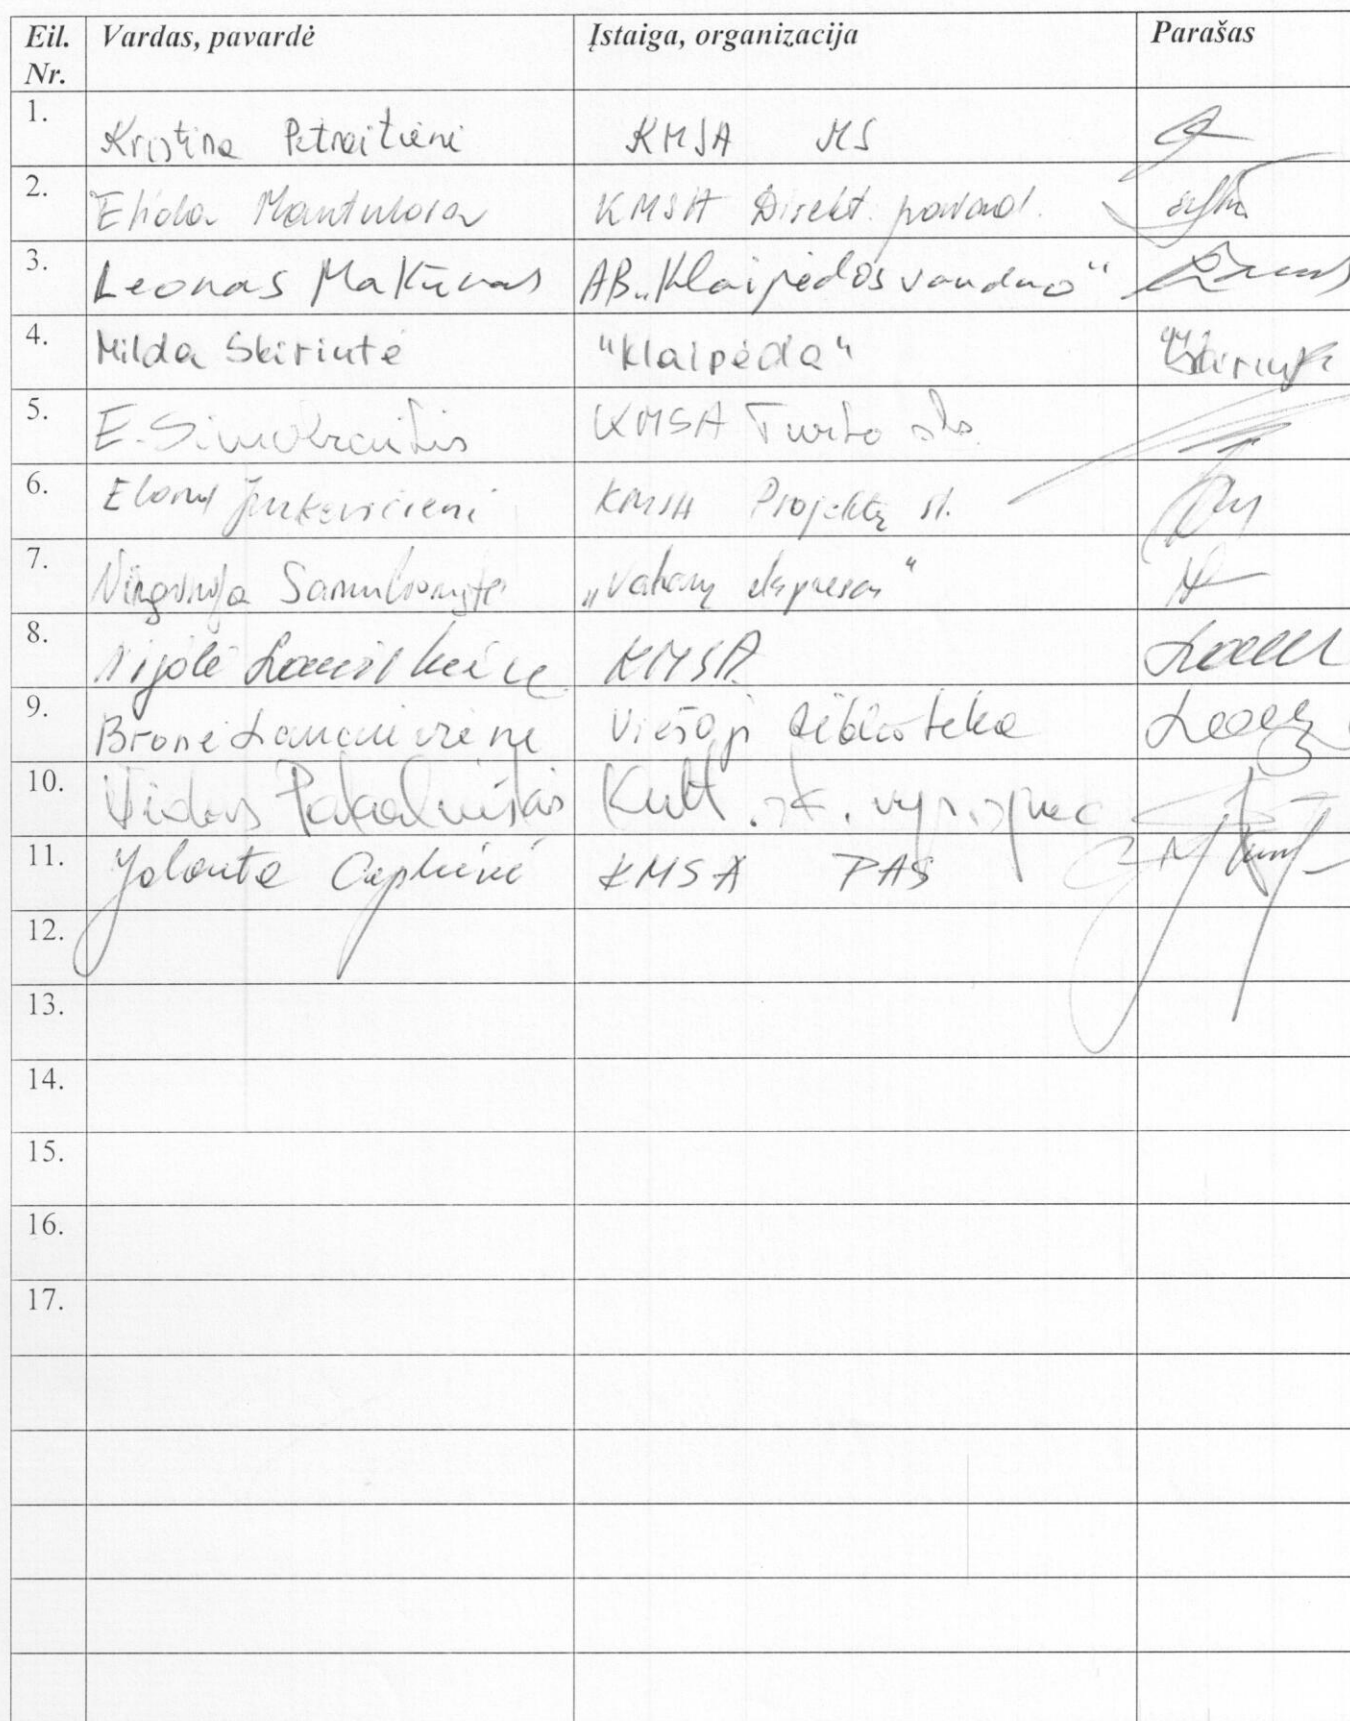 Eil. Nr. Vardas, pavardė Įstaiga, organizacija Parašas
1. Kristina Petraitienė KMSA MS
2. Elida Mantulova KMSA Direkt. pavad.
3. Leonas Makūnas AB „Klaipėdos vanduo“
4. Milda Skiriutė "Klaipėda" Skiriutė
5. E. Simokaitis KMSA Turto sk.
6. Elona Jurkevičienė KMSA Projektų sk.
7. Virginija „Vakarų ekspresas“
8. Nijolė KMSA
9. Bronė Viešoji biblioteka
10. Vidas Kult. sk. vyr. spec
11. Jolanta KMSA PAS
12.
13.
14.
15.
16.
17.